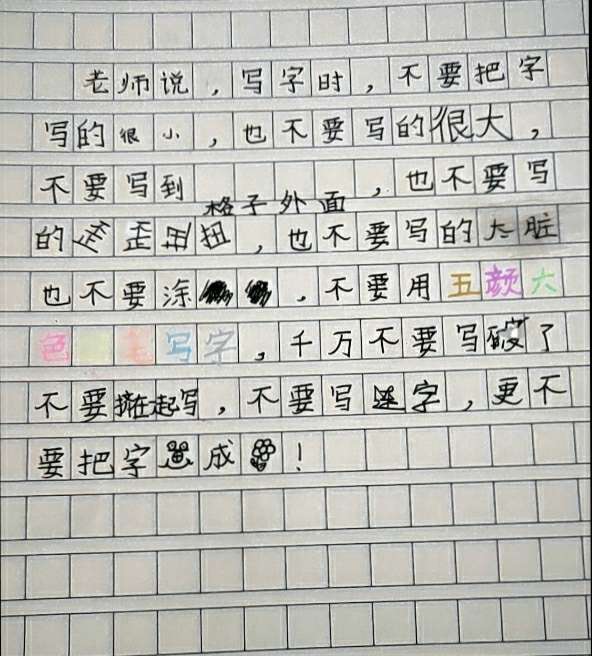 老师说，写字时，不要把字
写的很小，也不要写的很大，
不要写到格子外面，也不要写
的歪歪扭扭，也不要写的太脏
也不要涂，不要用五颜六
色笔写字，千万不要写破了
不要挤在一起写，不要写字，更不
要把字成！